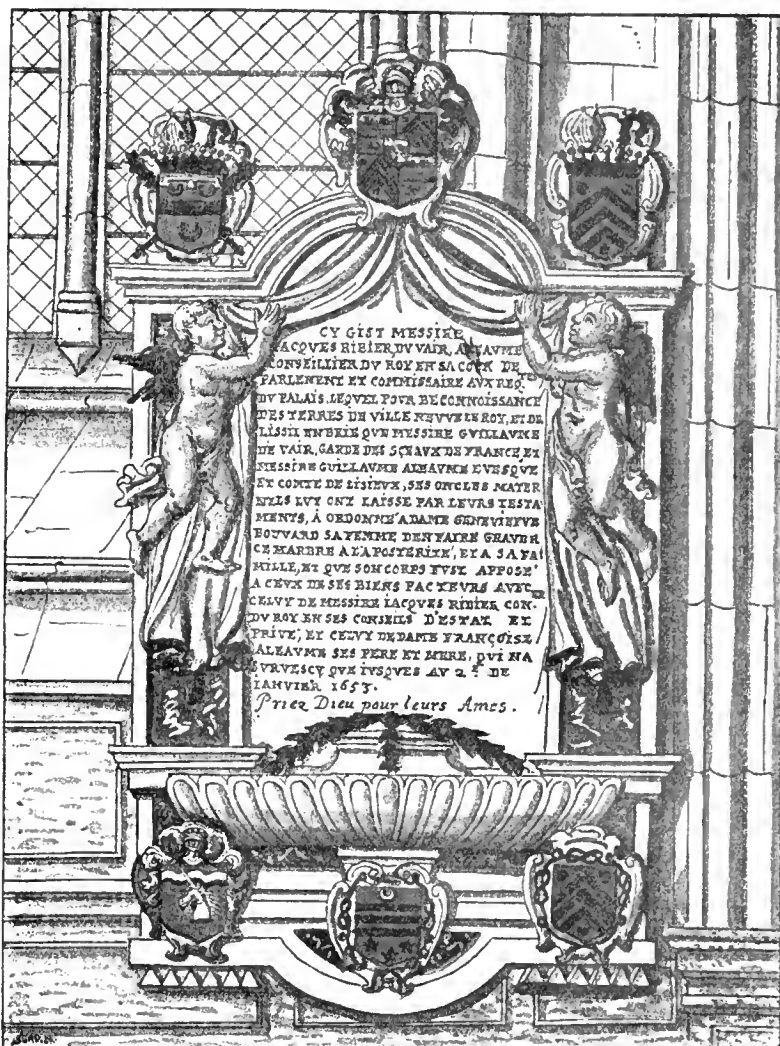 CY GIST MESSIRE
IACQVES RIBIER DV VAIR, ALEAVME
CONSEILLIER DV ROY EN SA COVR DE
PARLEMENT ET COMMISSAIRE AVX REQ.tes
DV PALAIS, LEQVEL POVR RECONNOISSANCE
DES TERRES DE VILLE NEVVE LE ROY, ET DE
LISSII EN BRIE QVE MESSIRE GVILLAVME
DE VAIR, GARDE DES SÇEAVX DE FRANCE, ET
MESSIRE GVILLAVME ALEAVME EVESQVE
ET COMTE DE LISIEVX, SES ONCLES MATER
NELS LVY ONT LAISSE PAR LEVRS TESTA
MENTS, À ORDONNÉ A DAME GENEVIEFVE
BOVVARD SA FEMME D'EN FAIRE GRAVER
CE MARBRE A LA POSTERITÉ, ET A SA FA
MILLE, ET QVE SON CORPS FVST APPOSÉ
A CEVX DE SES BIENS FACTEVRS AVEC
CELVY DE MESSIRE IACQVES RIBIER CON.er
DV ROY EN SES CONSEILS D'ESTAT ET
PRIVÉ, ET CELVY DE DAME FRANÇOISE
ALEAVME SES PERE ET MERE, QVI NA
SVRVESCV QVE IVSQVES AV 2.e DE
IANVIER 1653.
Priez Dieu pour leurs Ames.